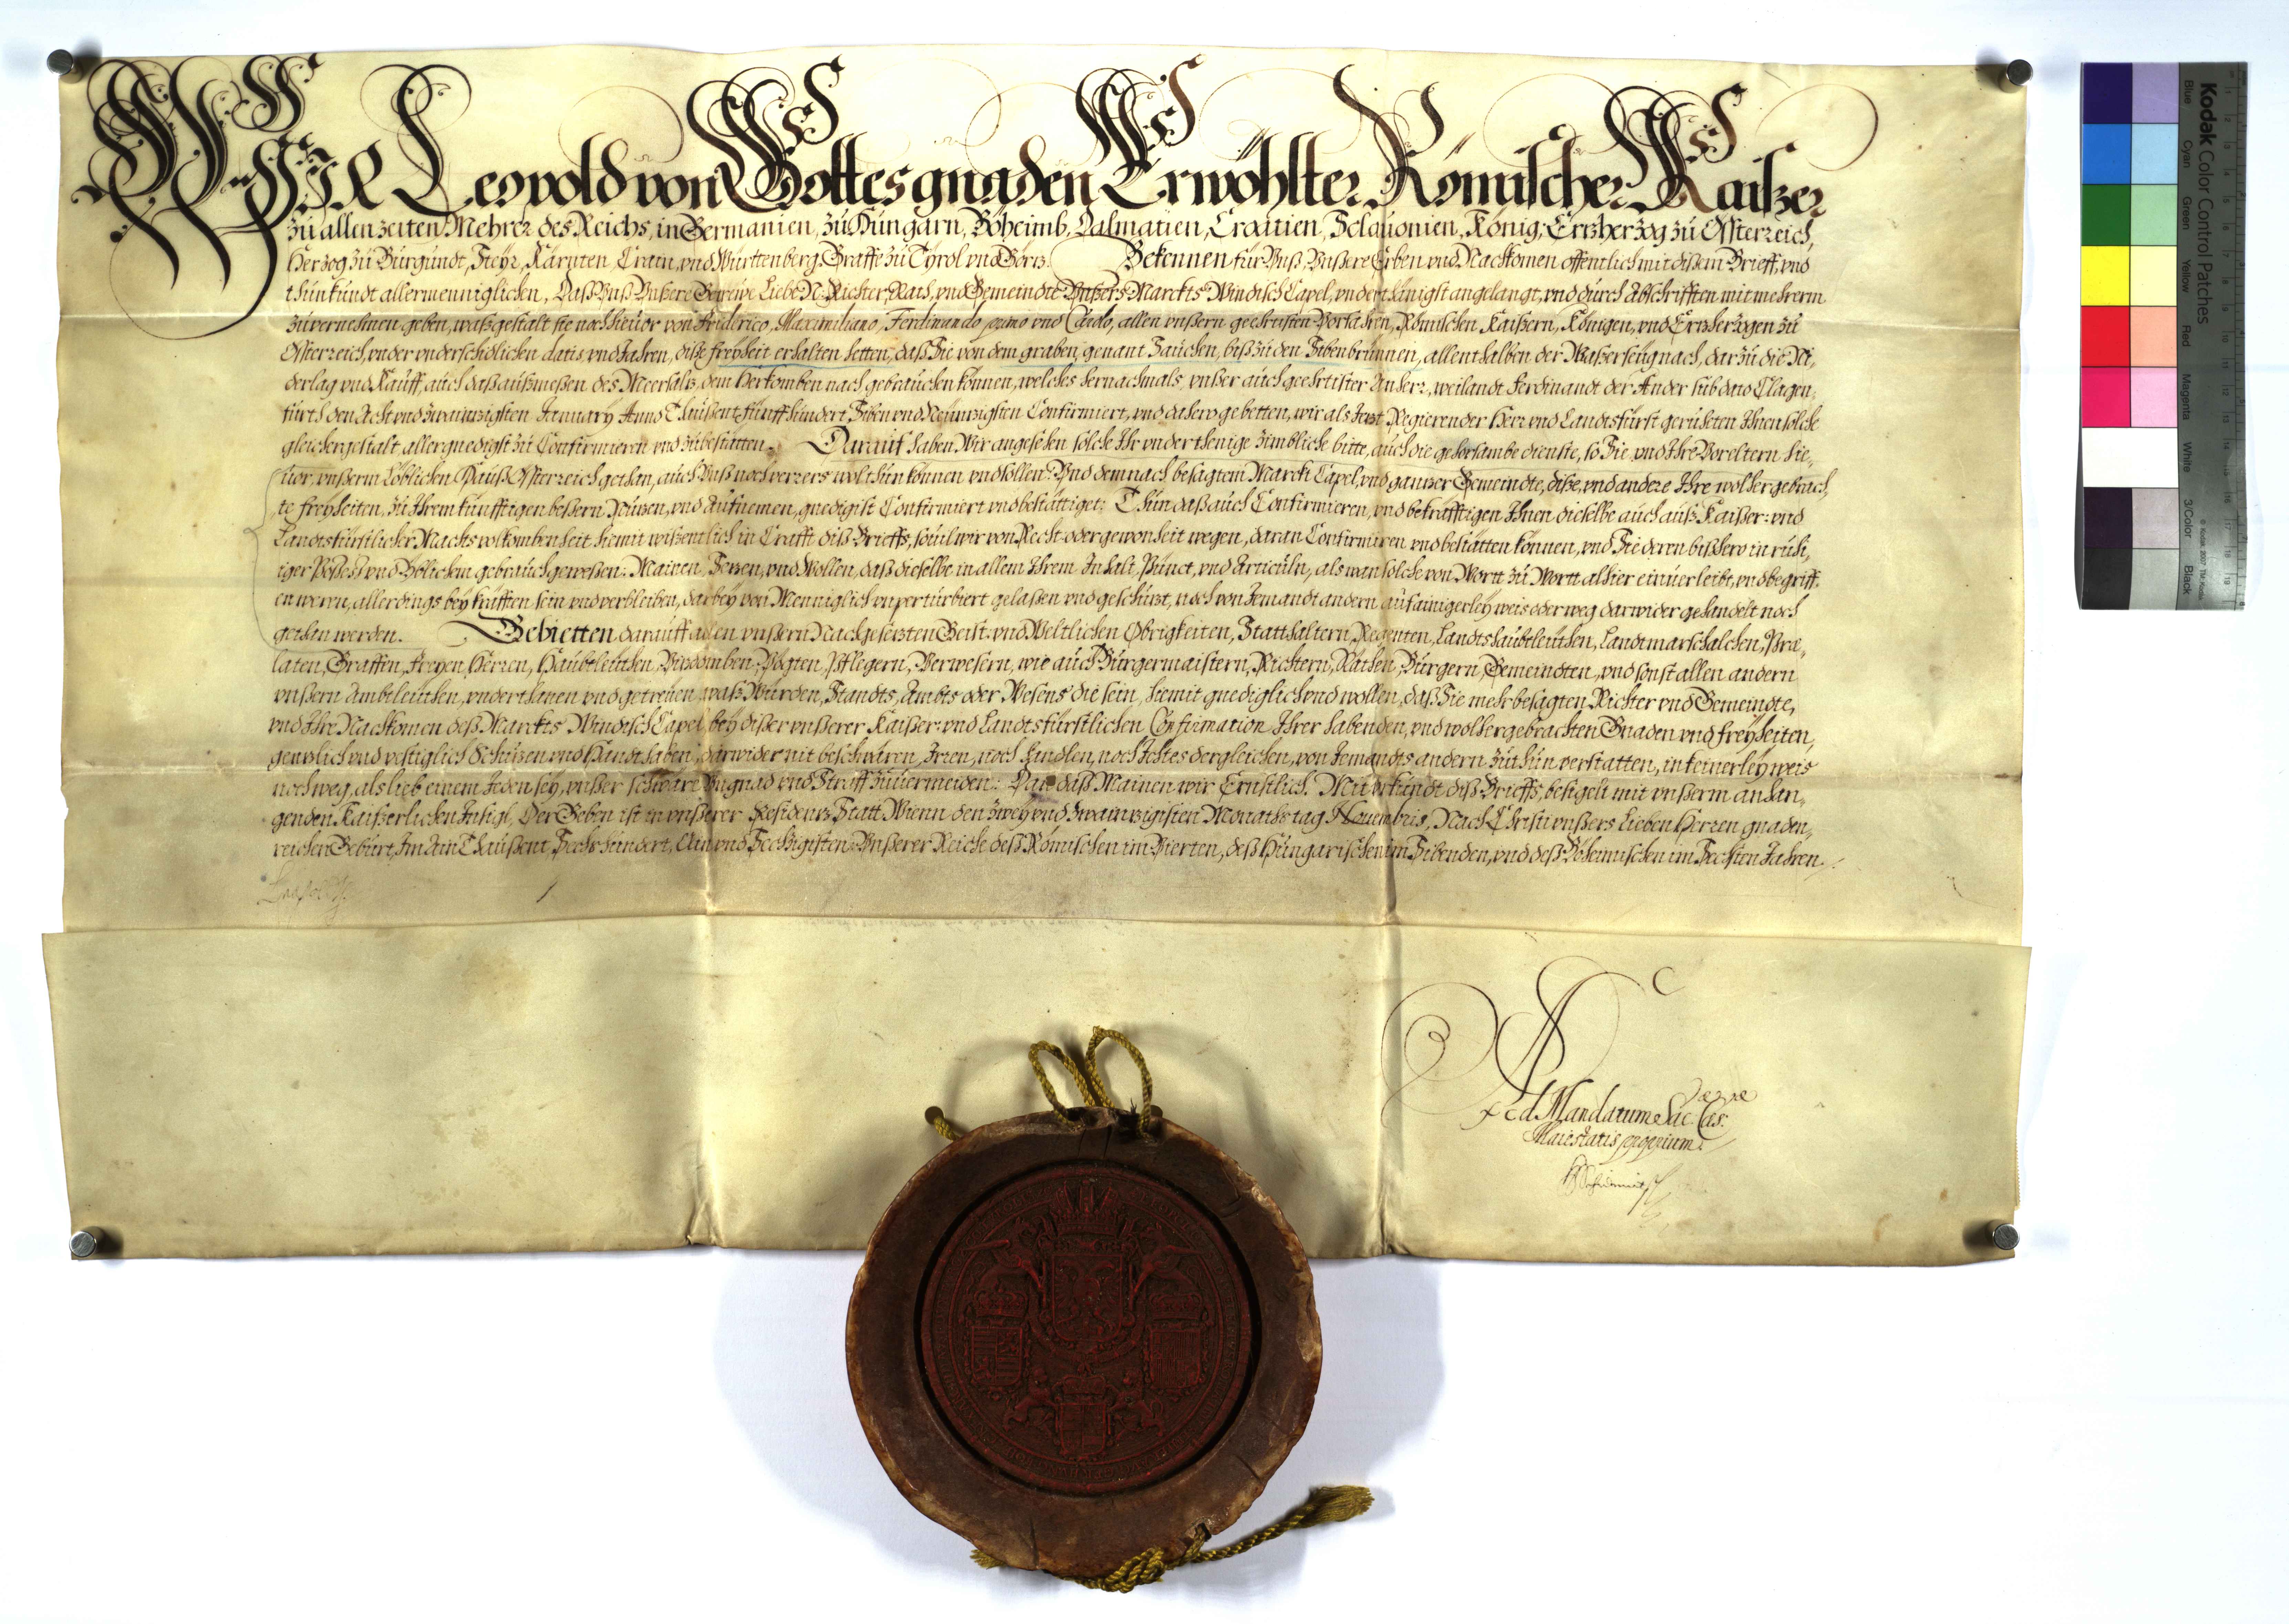 WIR Leopold von Gottes gnaden Erwöhlter Römischer Kaißer
zu allen zeiten Mehrer des Reichs, in Germanien, zu Hungarn, Böheimb, Dalmatien, Croatien, Sclauonien, König, Ertzherzog zu Össterreich,
Herzog zu Burgundt, Steyr, Kärnten, Crain, vnd Württenberg, Graffe zu Tyrol vnd Görtz. Bekennen für Vnß, Vnßere Erben vnd Nachkomen offentlich mit dißem Brieff, vnd
thun kundt allermenniglichen, Daß Vnß Vnßere Getrewe Liebe N: Richter, Rath, vnd Gemeindte Vnßers Marckts Windisch Capel, vnderthänigst angelangt, vnd durch Abschrifften mit mehrerm
zuuernehmen geben, waßgestalt sie noch hieuor von Friderico, Maximiliano, Ferdinando primo vnd Carolo, allen vnßern geehrtisten Vorfahren, Römischen Kaißern, Königen, vnd Ertzherzogen zu
Össterreich, vnder vnderschidlichen datis vnd Jahren, diße freyheit erhalten hetten, daß Sie von dem graben, genant Saucken, biß zu den Sibenbrunnen, allenthalben der Waßerseüg nach, darzu die Ni,
derlag vnd Kauff, auch daß außmeßen des Meersaltz, dem Herkomben nach gebrauchen können, welches hernachmals, vnßer auch geehrtister Anherr, weilandt Ferdinandt der Ander sub dato Clagen,
furth den Acht vnd zwaintzigsten January Anno Thaußent fünffhundert Siben vnd Neüntzigsten Confirmiert, vnd dahero gebetten, wir als Jetzt Regierender Herr vnd Landtsfürst geruheten Ihnen solche
gleichergestalt allergnedigst zu Confirmieren vnd zubestätten. Darauf haben Wir angesehen solche Ihr vnderthenige zimbliche bitte, auch die gehorsambe dienste, so Sie, vnd Ihre Voreltern hie,
uor, vnßerm Löblichen Hauß Össterreich gethan, auch Vnß noch verrers wol thun können vnd sollen: Vnd demnach besagtem Marckt Capel, vnd gantzer Gemeindte, diße, vnd andere Ihre wolhergebrach,
te freyheiten, zu Ihrem künfftigen beßern Nutzen, vnd Aufnemen, gnedigist Confirmiert vnd bestättiget: Thun daß auch Confirmieren, vnd bekräfftigen Ihnen dieselbe auch auß Kaißer: vnd
Landtsfürstlicher Machtsvolkombenheit hiemit wißentlich in Crafft diß Brieffs, souil wir von Recht oder gewonheit wegen, daran Confirmiren vnd bestätten können, vnd Sie deren bißhero in ruhi,
iger Posseß vnd Yblichem gebrauch geweßen. Mainen, Setzen, vnd Wollen, daß dieselbe in allem Ihrem Inhalt, Punct, vnd Articuln, als wan solche von Wortt zu Wortt alhier einuerleibt, vnd begriff,
en wern, allerdings bey kräfften sein vnd verbleiben, darbey von Menniglich vnperturbiert gelaßen vnd geschutzt, noch von Jemandt andern auf ainigerley weis oder weg darwider gehandelt noch
gethan werden. Gebietten darauff allen vnßern Nachgesetzten Geist: vnd Weltlichen Obrigkeiten, Statthaltern, Regenten, Landtshaubtleüthen, Landtmarschalchen, Præ,
laten, Graffen, Freyen, Herren, Haubtleüthen, Vitzdomben, Vögten, Pflegern, Verwesern, wie auch Burgermaistern, Richtern, Räthen, Burgern, Gemeindten, vnd sonst allen andern
vnßern Ambtleüthen, vnderthanen vnd getreüen, waß Würden, Standts, Ambts oder Wesens die sein, hiemit gnediglich vnd wollen, daß Sie mehrbesagten Richter vnd Gemeindte,
vnd Ihre Nachkomen deß Marckts Windisch Capel, bey dißer vnßerer Kaißer: vnd Landtsfürstlichen Confirmation Ihrer habenden, vnd wolhergebrachten Gnaden vnd freyheiten,
gentzlich vnd vestiglich Schutzen vnd Handthaben, darwider nit beschwären, Irren, noch hindlen, noch Ichtes dergleichen, von Jemandts andern zuthun verstatten, in keinerley weis
noch weg, als lieb einem Jeden sey, vnßer schwäre Vngnad vnd Straff zuuermeiden: Dan daß Mainen wir Ernstlich. Mit vrkundt diß Brieffs, besigelt mit vnßerm anhan,
genden Kaißerlichen Insigl, Der Geben ist in vnßerer Residentz Statt Wienn den zwey vnd zwaintzigisten Monathstag Nouembris, Nach Christi vnßers Lieben Herren gnaden,
reichen Geburt, Im Ain Thaußent, Sechshundert, Ain vnd Sechzigisten, Vnßerer Reiche deß Römischen im Vierten, deß Hungarischen im Sibenden, vnd deß Böheimischen im Sechsten Jahren.
Leopold
Ad Mandatum Sac: Cæs:
Maiestatis proprium.
Kodak Color Control Patches
Blue Cyan Green Yellow Red Magenta White 3/Color Black
© Kodak, 2007 TM: Kodak